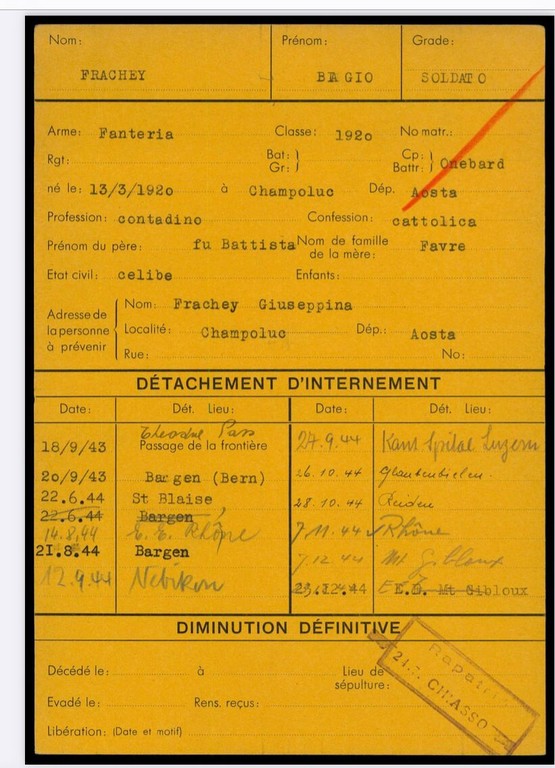 Nom: Prénom: Grade:
FRACHEY BIAGIO SOLDATO
Arme: Fanteria Classe: 1920 No matr.:
Rgt: Bat: Gr: Cp: Battr: Onebard
né le: 13/3/1920 à Champoluc Dép. Aosta
Profession: contadino Confession: cattolica
Prénom du père: fu Battista Nom de famille de la mère: Favre
Etat civil: celibe Enfants:
Adresse de la personne à prévenir
Nom: Frachey Giuseppina
Localité: Champoluc Dép.: Aosta
Rue: No:
DÉTACHEMENT D'INTERNEMENT
Date: Dét. Lieu: Date: Dét. Lieu:
18/9/43 Theodul Pass Passage de la frontière
20/9/43 Bargen (Bern)
22.6.44 St Blaise
22.6.44 Bargen
14.8.44 Rhône
21.8.44 Bargen
12.9.44 Nebikon
27.9.44 Kant Spital Luzern
26.10.44
28.10.44 Reiden
7.11.44 Rhône
7.12.44 Mt Gibloux
Mt Gibloux
DIMINUTION DÉFINITIVE
Décédé le: à Lieu de sépulture:
Evadé le: Rens. reçus:
Libération: (Date et motif)
CHIASSO